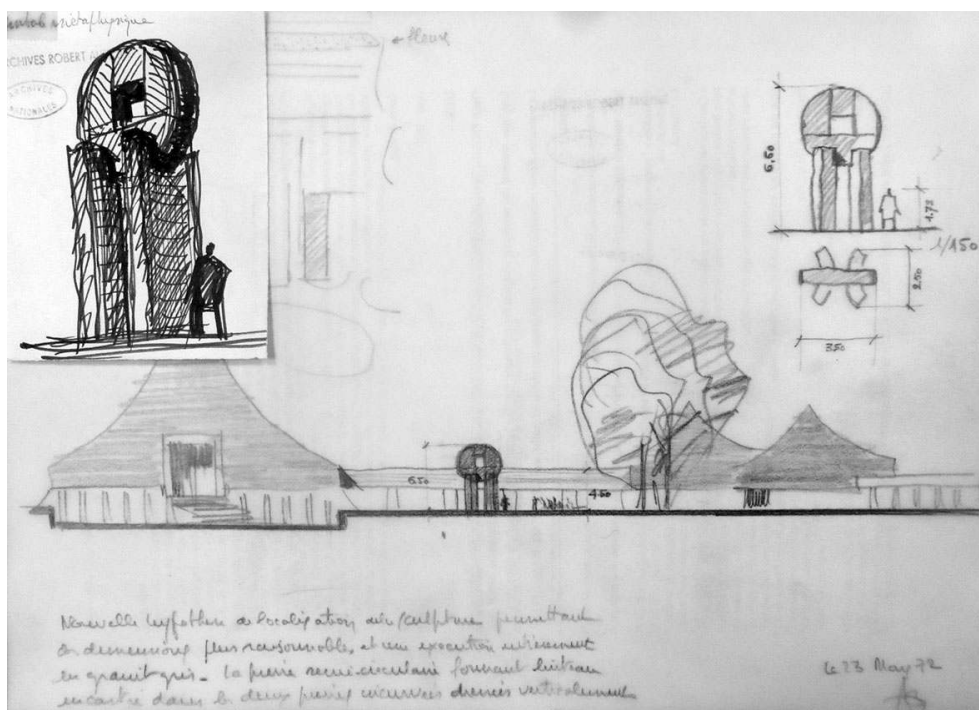 métaphysique
ARCHIVES ROBERT
ARCHIVES
NATIONALES
fleuve
6,50
1.72
1/150
2,50
3.50
6.50
4.50
Nouvelle hypothèse de localisation de la sculpture permettant
des dimensions plus raisonnables, et une exécution entièrement
en granit gris. La pierre semi-circulaire formant linteau
encastré dans les deux pierres incurvées dressées verticalement
Le 23 May 72